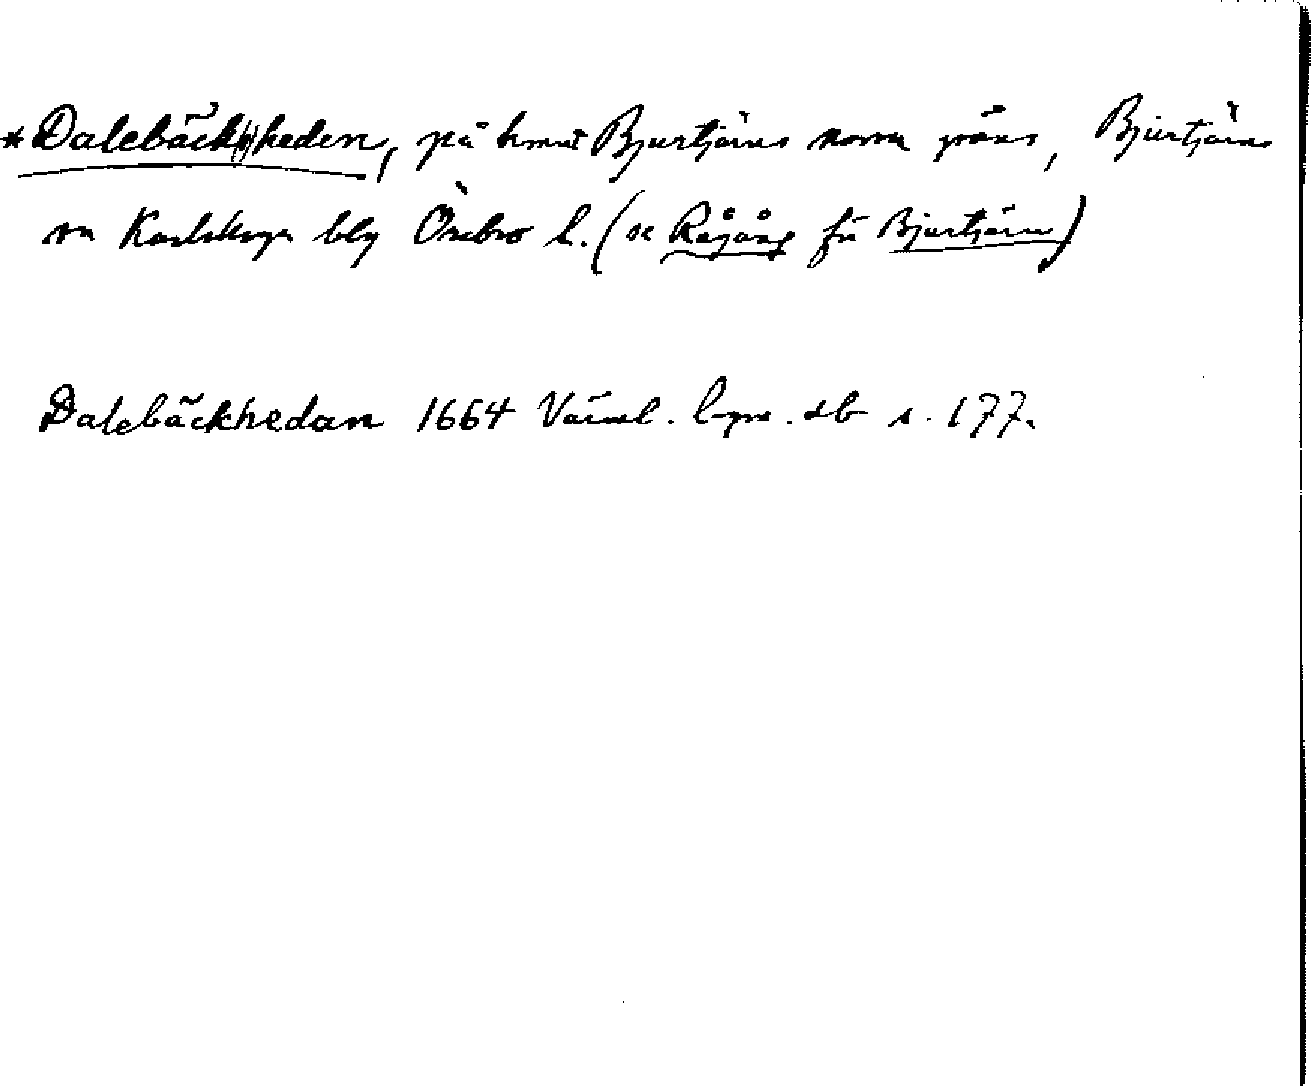 *Dalebäckheden, på hmt Bjurtjärns norra gräns, Bjurtjärns
sn Karlskoga blg Örebro l. (se Rågång för Bjurtjärn)
Dalebäckhedan 1664 Värml. lgns. db s. 177.